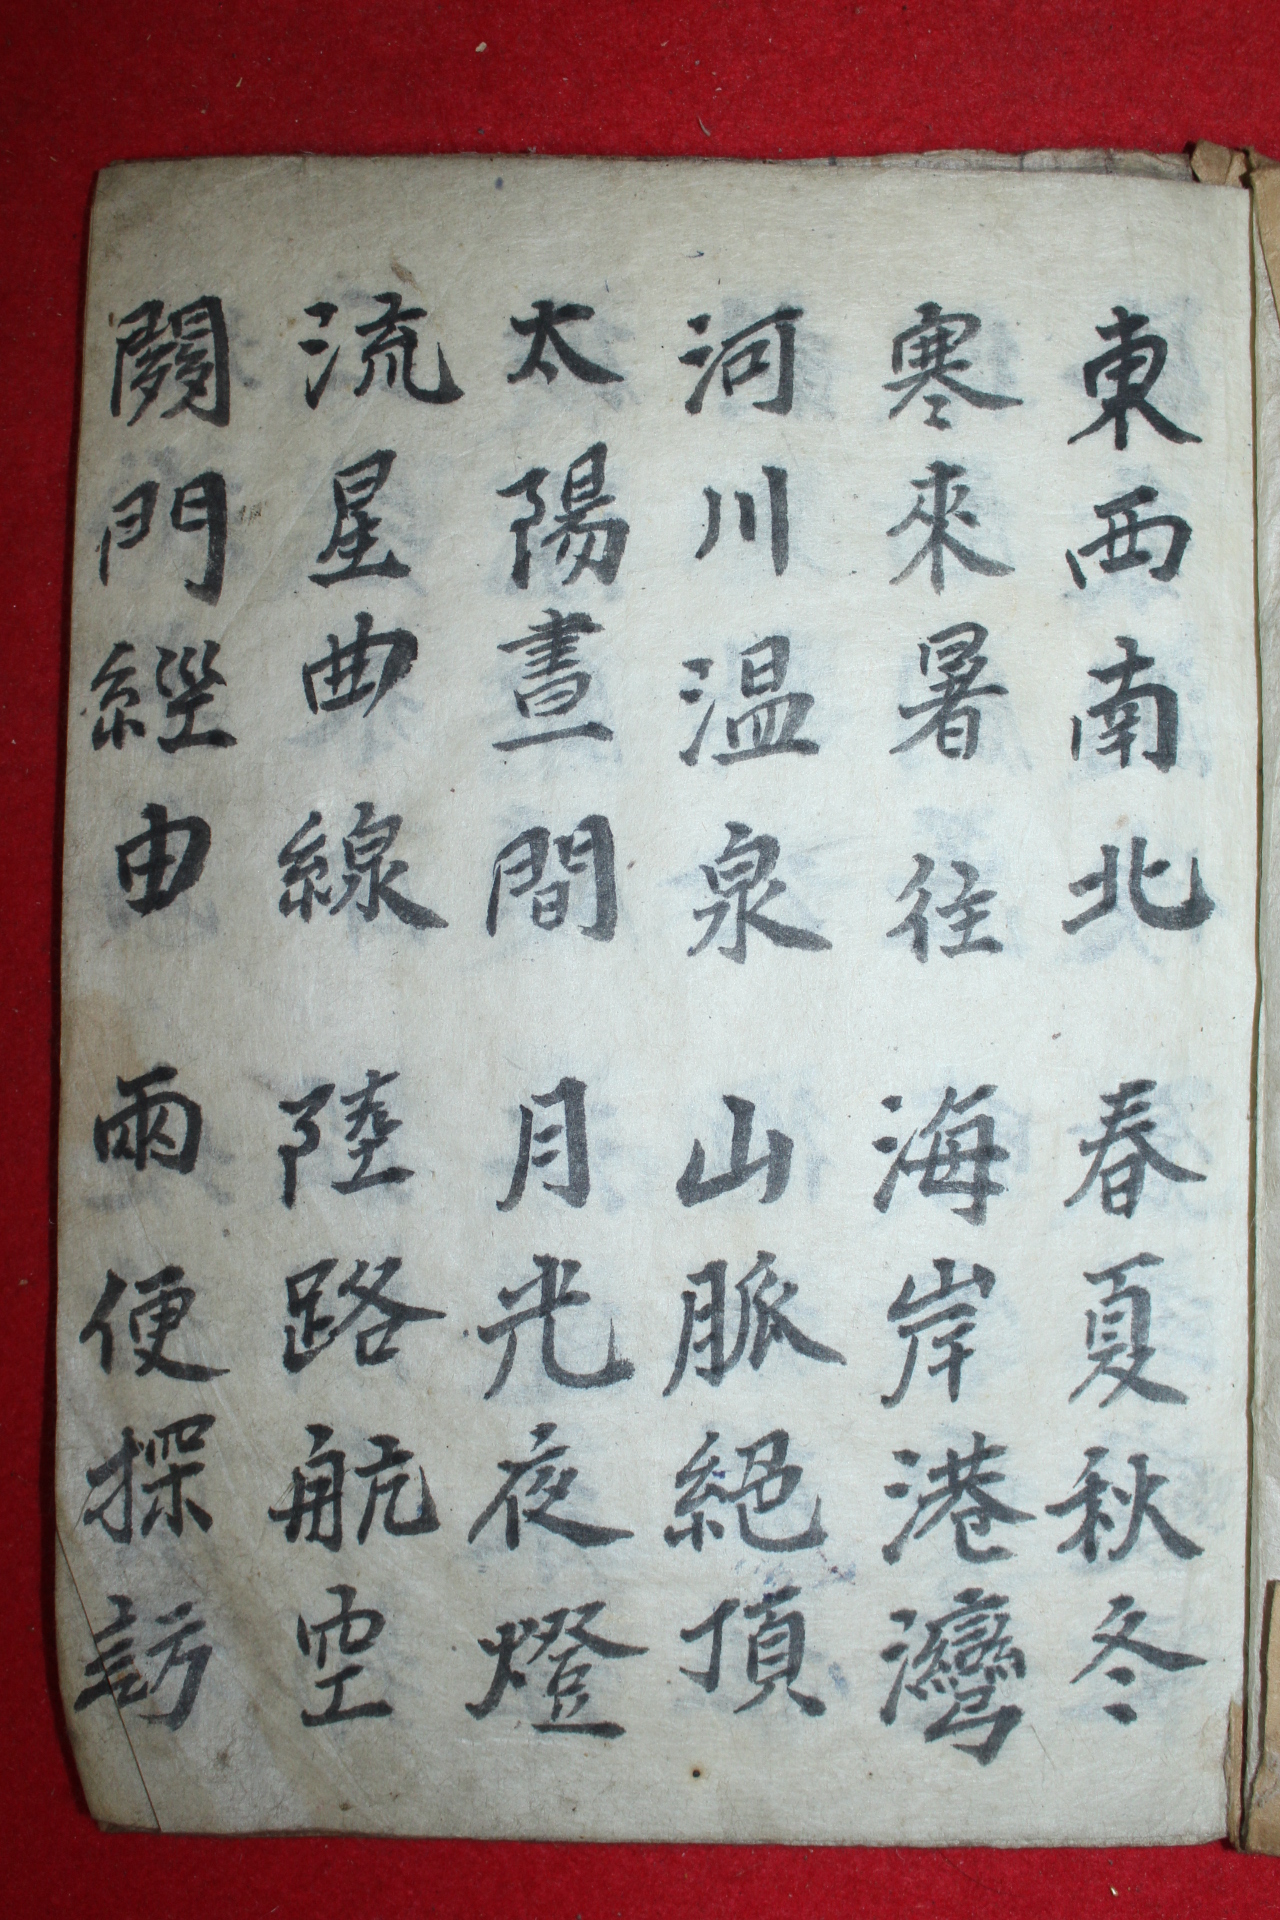 東西南北 春夏秋冬
寒來暑往 海岸港灣
河川温泉 山脈絶頂
太陽晝間 月光夜燈
流星曲線 陸路航空
門經由 兩便探訪